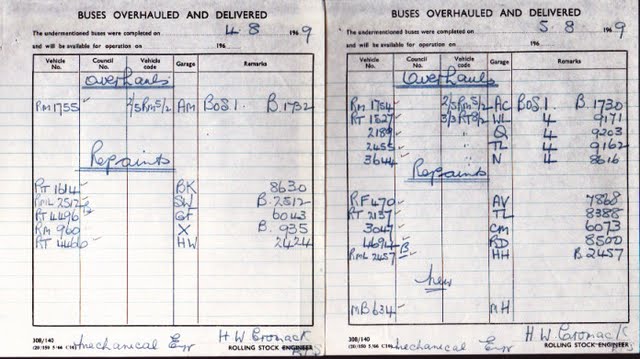 BUSES OVERHAULED AND DELIVERED
The undermentioned buses were completed on 4 8 1969
and will be available for operation on 196
Vehicle No. Council No. Vehicle code Garage Remarks
Overhauls
RM1755 2/5RM5/2 AM BOS 1. B.1732
Repaints
RT 1614 BK 8630
RML 2512 SW B.2512
RT 4496 GF 6043
RM 960 X B. 935
RT 4466 HW 2424
308/140
Mechanical Eng H W Cromack
ROLLING STOCK ENGINEER
BUSES OVERHAULED AND DELIVERED
The undermentioned buses were completed on 5.8 1969
and will be available for operation on 196
Vehicle No. Council No. Vehicle code Garage Remarks
Overhauls
RM 1754 2/5RM5/2 AC BOS 1. B.1730
RT 1527 3/3RT8/2 WL 4 9171
2189 " Q 4 9203
2455 " TL 4 9162
3644 " N 4 8616
Repaints
RF 470 AV 7868
RT 2137 TL 8388
3047 CM 6073
4694 B RD 8500
RML 2457 HH B 2457
New
MB 634 MH
308/140
Mechanical Eng H W Cromack
ROLLING STOCK ENGINEER